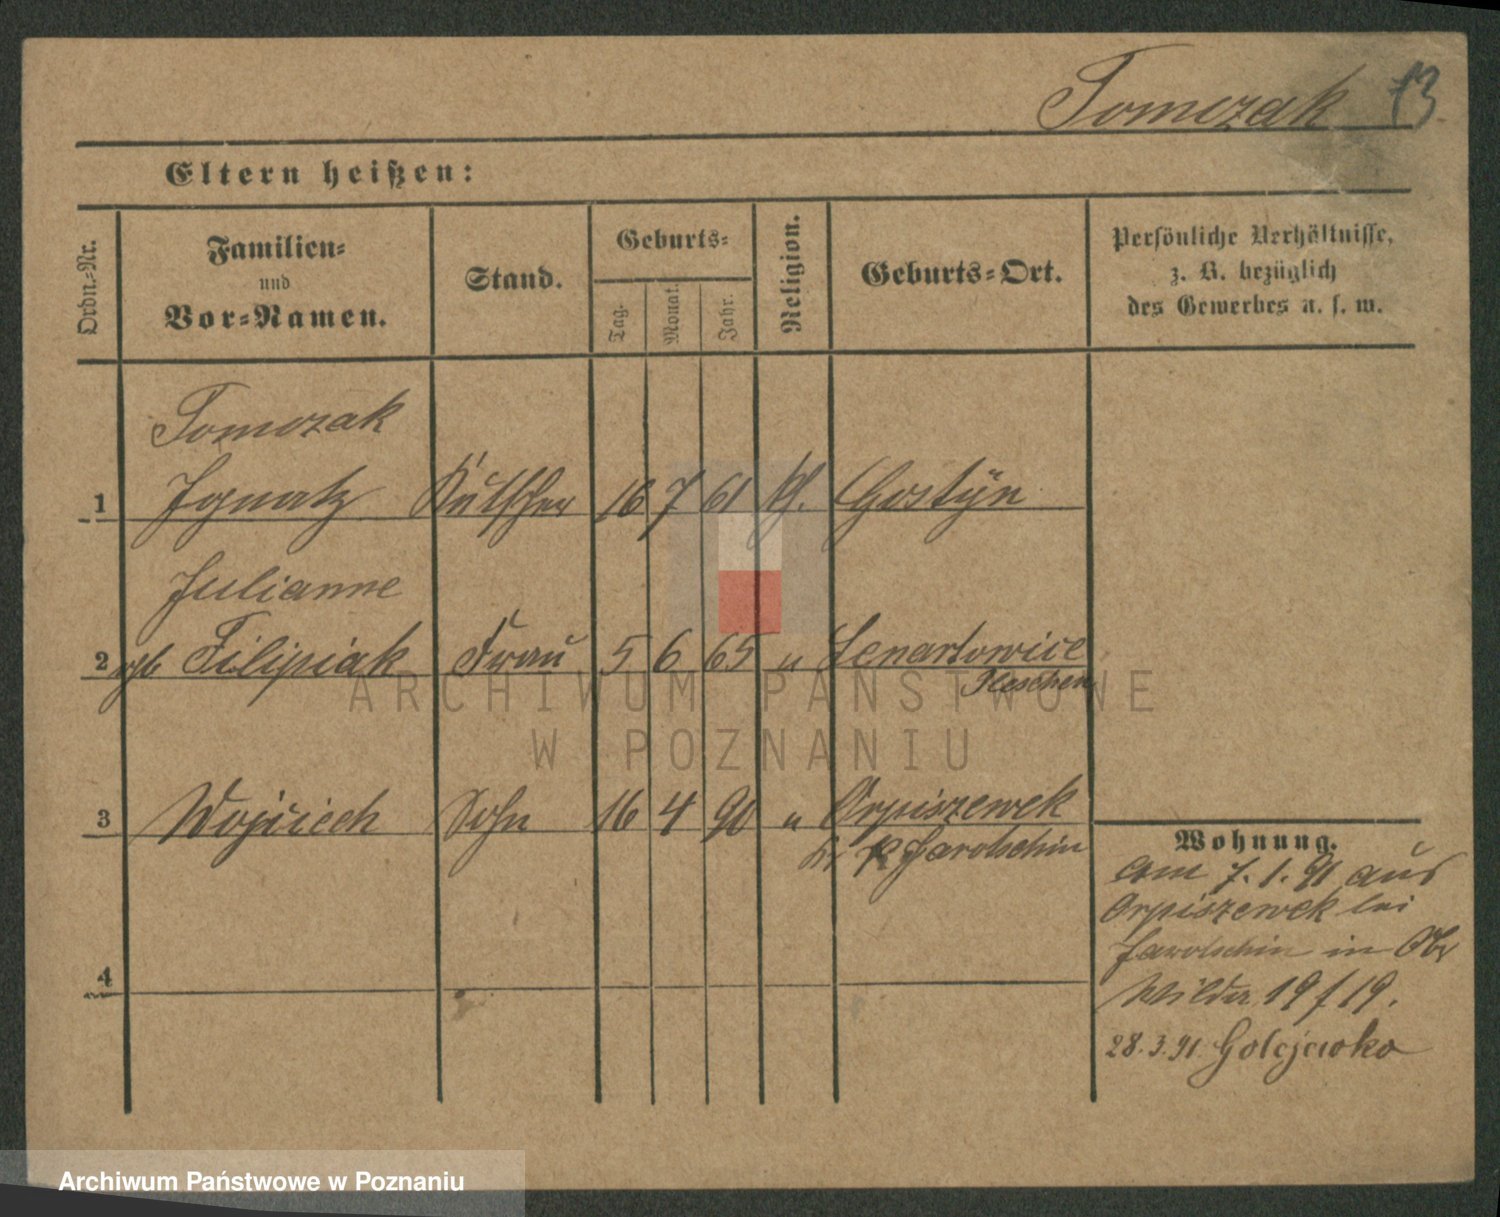 Tomczak 73
Eltern heißen:
Ordn.-Nr.
Familien-
und
Vor-Namen.
Stand.
Geburts-
Tag.
Monat.
Jahr.
Religion.
Geburts-Ort.
Persönliche Verhältnisse,
z. B. bezüglich
des Gewerbes u. s. w.
Tomczak
1 Ignatz Kutscher 16 7 61 kt. Gostÿn
Julianne
2 gb Filipiak Frau 5 6 65 " Lenartowice
Pleschen
3 Wojciech Sohn 16 4 90 " Orpiszewek
Kr Jarotschin
4
Wohnung.
Am 7.1.91 aus
Orpiszewek bei
Jarotschin in Ob
Wilda 19/19.
28.3.91 Golejewko
ARCHIWUM PAŃSTWOWE
W POZNANIU
Archiwum Państwowe w Poznaniu